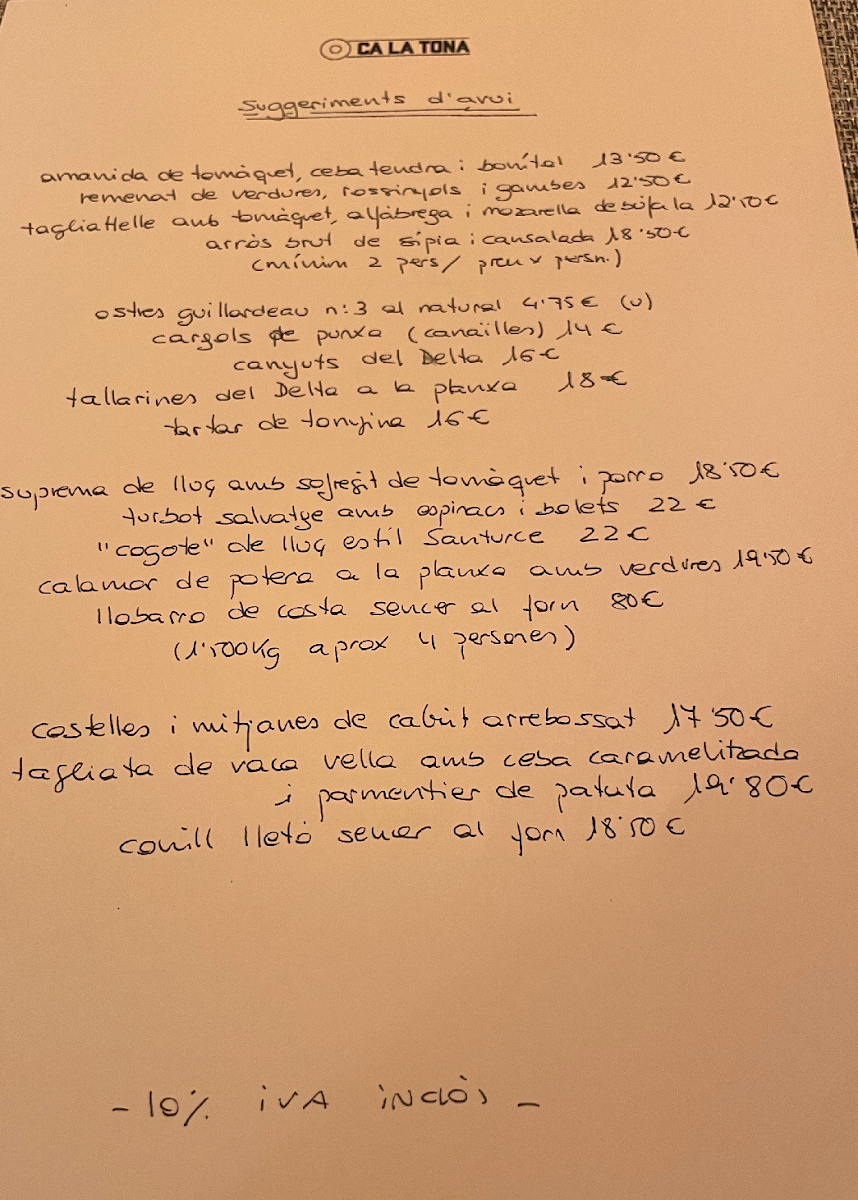 CA LA TONA
Suggeriments d'avui
amanida de tomàquet, ceba tendra i bonítol 13'50 €
remenat de verdures, rossinyols i gambes 12'50€
tagliattelle amb tomàquet, alfàbrega i mozarella de búfala 12'50€
arròs brut de sípia i cansalada 18'50€
(mínim 2 pers/ preu x persn.)
ostres guillardeau n:3 al natural 4'75€ (u)
cargols de punxa (canaïlles) 14 €
canyuts del Delta 16€
tallarines del Delta a la planxa 18€
tartar de tonyina 16€
suprema de lluç amb sofregit de tomàquet i porro 18'50€
turbot salvatge amb espinacs i bolets 22 €
"cogote" de lluç estil Santurce 22€
calamar de potera a la planxa amb verdures 19'50€
llobarro de costa sencer al forn 80€
(1'500Kg aprox 4 persones)
costelles i mitjanes de cabrit arrebossat 17'50€
tagliata de vaca vella amb ceba caramelitzada
i parmentier de patata 19'80€
conill lletó sencer al forn 18'50€
- 10% iVA inclòs -